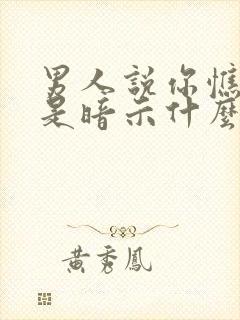 男人說你憔
是暗示什麼
黃秀鳳